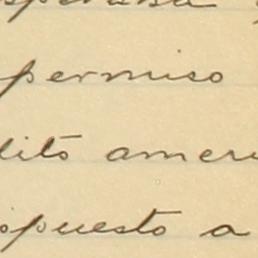 permiso
dito ameri
puesto a